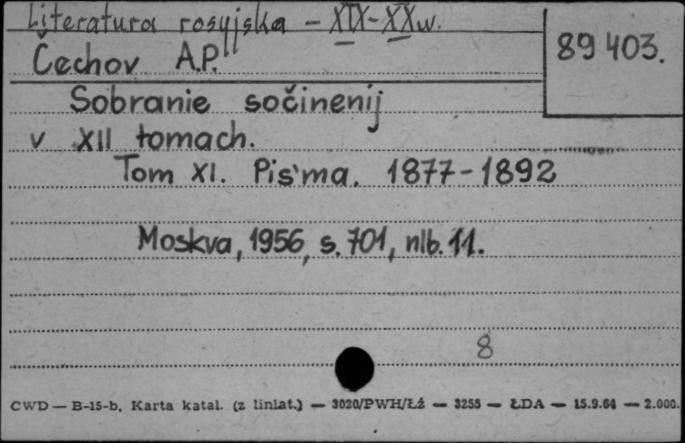 Literatura rosyjska - XIX-XX w.
Čechov A.P.
89 403.
Sobranie sočinenij
v XII tomach.
Tom XI. Pis'ma. 1877-1892
Moskva, 1956, s. 701, nlb. 11.
8
CWD — B-15-b, Karta katal. (z liniat.) — 3020/PWH/Łż — 3255 — ŁDA — 15.9.64 — 2.000.